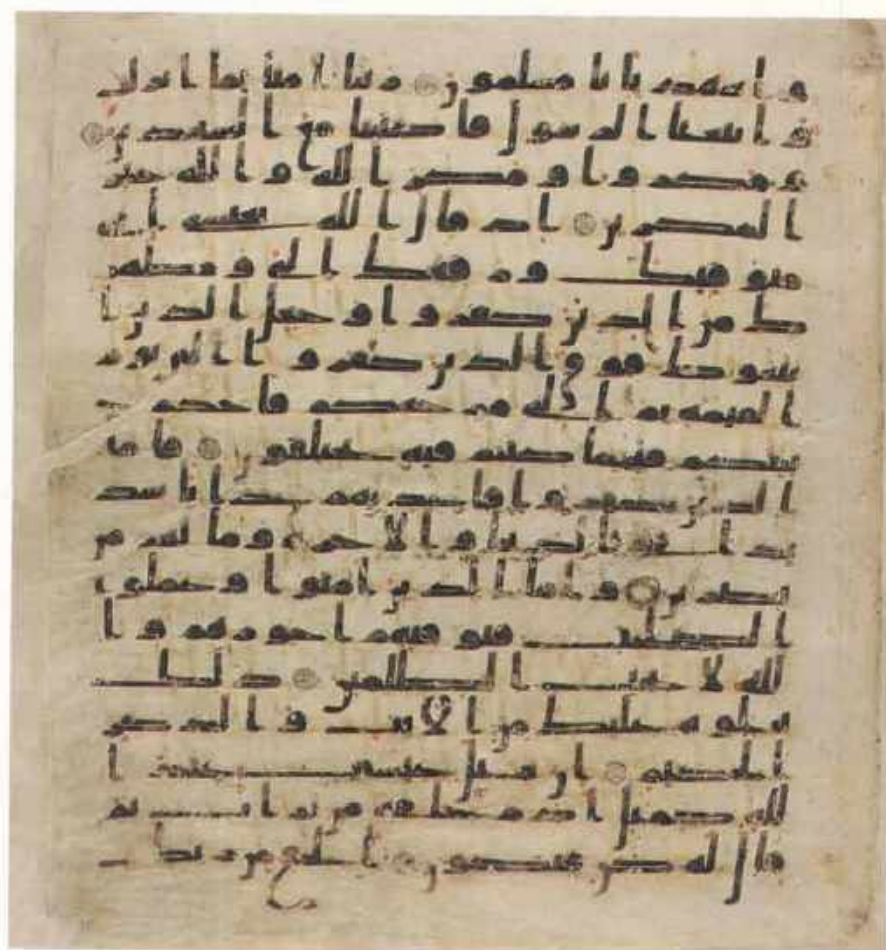 واشهد بانا مسلمون ربنا امنا بما انزلت
واتبعنا الرسول فاكتبنا مع الشهدين
ومكروا ومكر الله والله خير
المكرين اذ قال الله يعيسى اني
متوفيك ورفعك الي ومطهر
ك من الذين كفروا وجعل الذين ا
تبعوك فوق الذين كفروا الى يوم
القيمة ثم الي مرجعكم فاحكم
بينكم فيما كنتم فيه تختلفون فاما
الذين كفروا فاعذبهم عذابا شد
يدا في الدنيا والاخرة وما لهم م
ن نصرين واما الذين امنوا وعملوا
الصلحت فيوفيهم اجورهم وا
لله لا يحب الظلمين ذلك
نتلوه عليك من الايت والذكر
الحكيم ان مثل عيسى عند ا
لله كمثل ادم خلقه من تراب ثم
قال له كن فيكون الحق من ربك